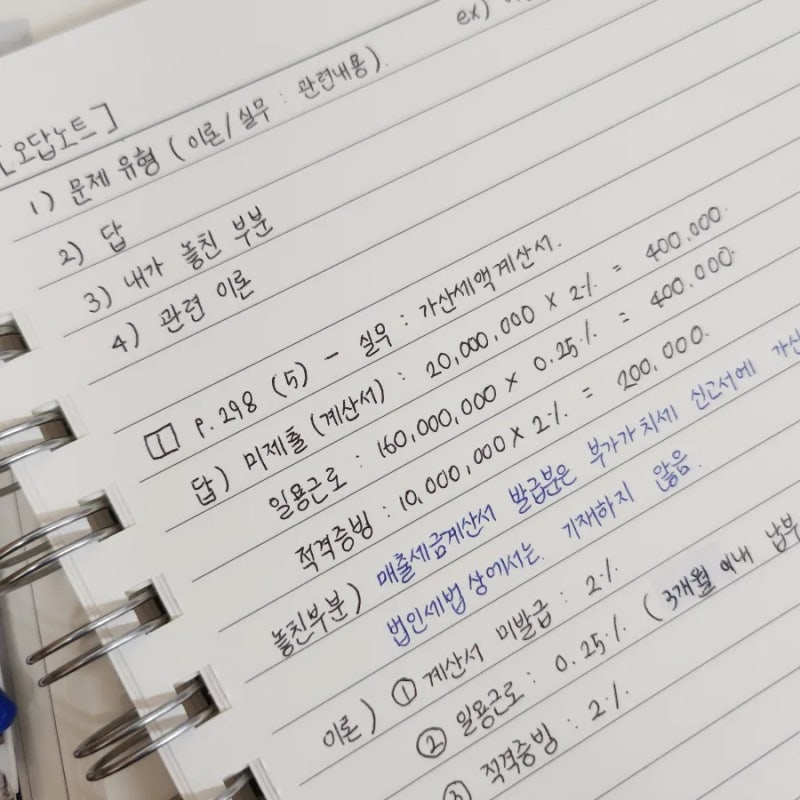 ex)
[오답노트]
1) 문제 유형 (이론/실무 : 관련내용).
2) 답
3) 내가 놓친 부분
4) 관련 이론
1 p.298 (5) - 실무 : 가산세액계산서.
답) 미제출(계산서) : 20,000,000 × 2% = 400,000.
일용근로 : 160,000,000 × 0.25% = 400,000.
적격증빙 : 10,000,000 × 2% = 200,000.
놓친부분) 매출세금계산서 발급분은 부가가치세 신고서에 가산
법인세법상에서는 기재하지 않음.
이론) ① 계산서 미발급 : 2%.
② 일용근로 : 0.25% (3개월 이내 납부
③ 적격증빙 : 2%.